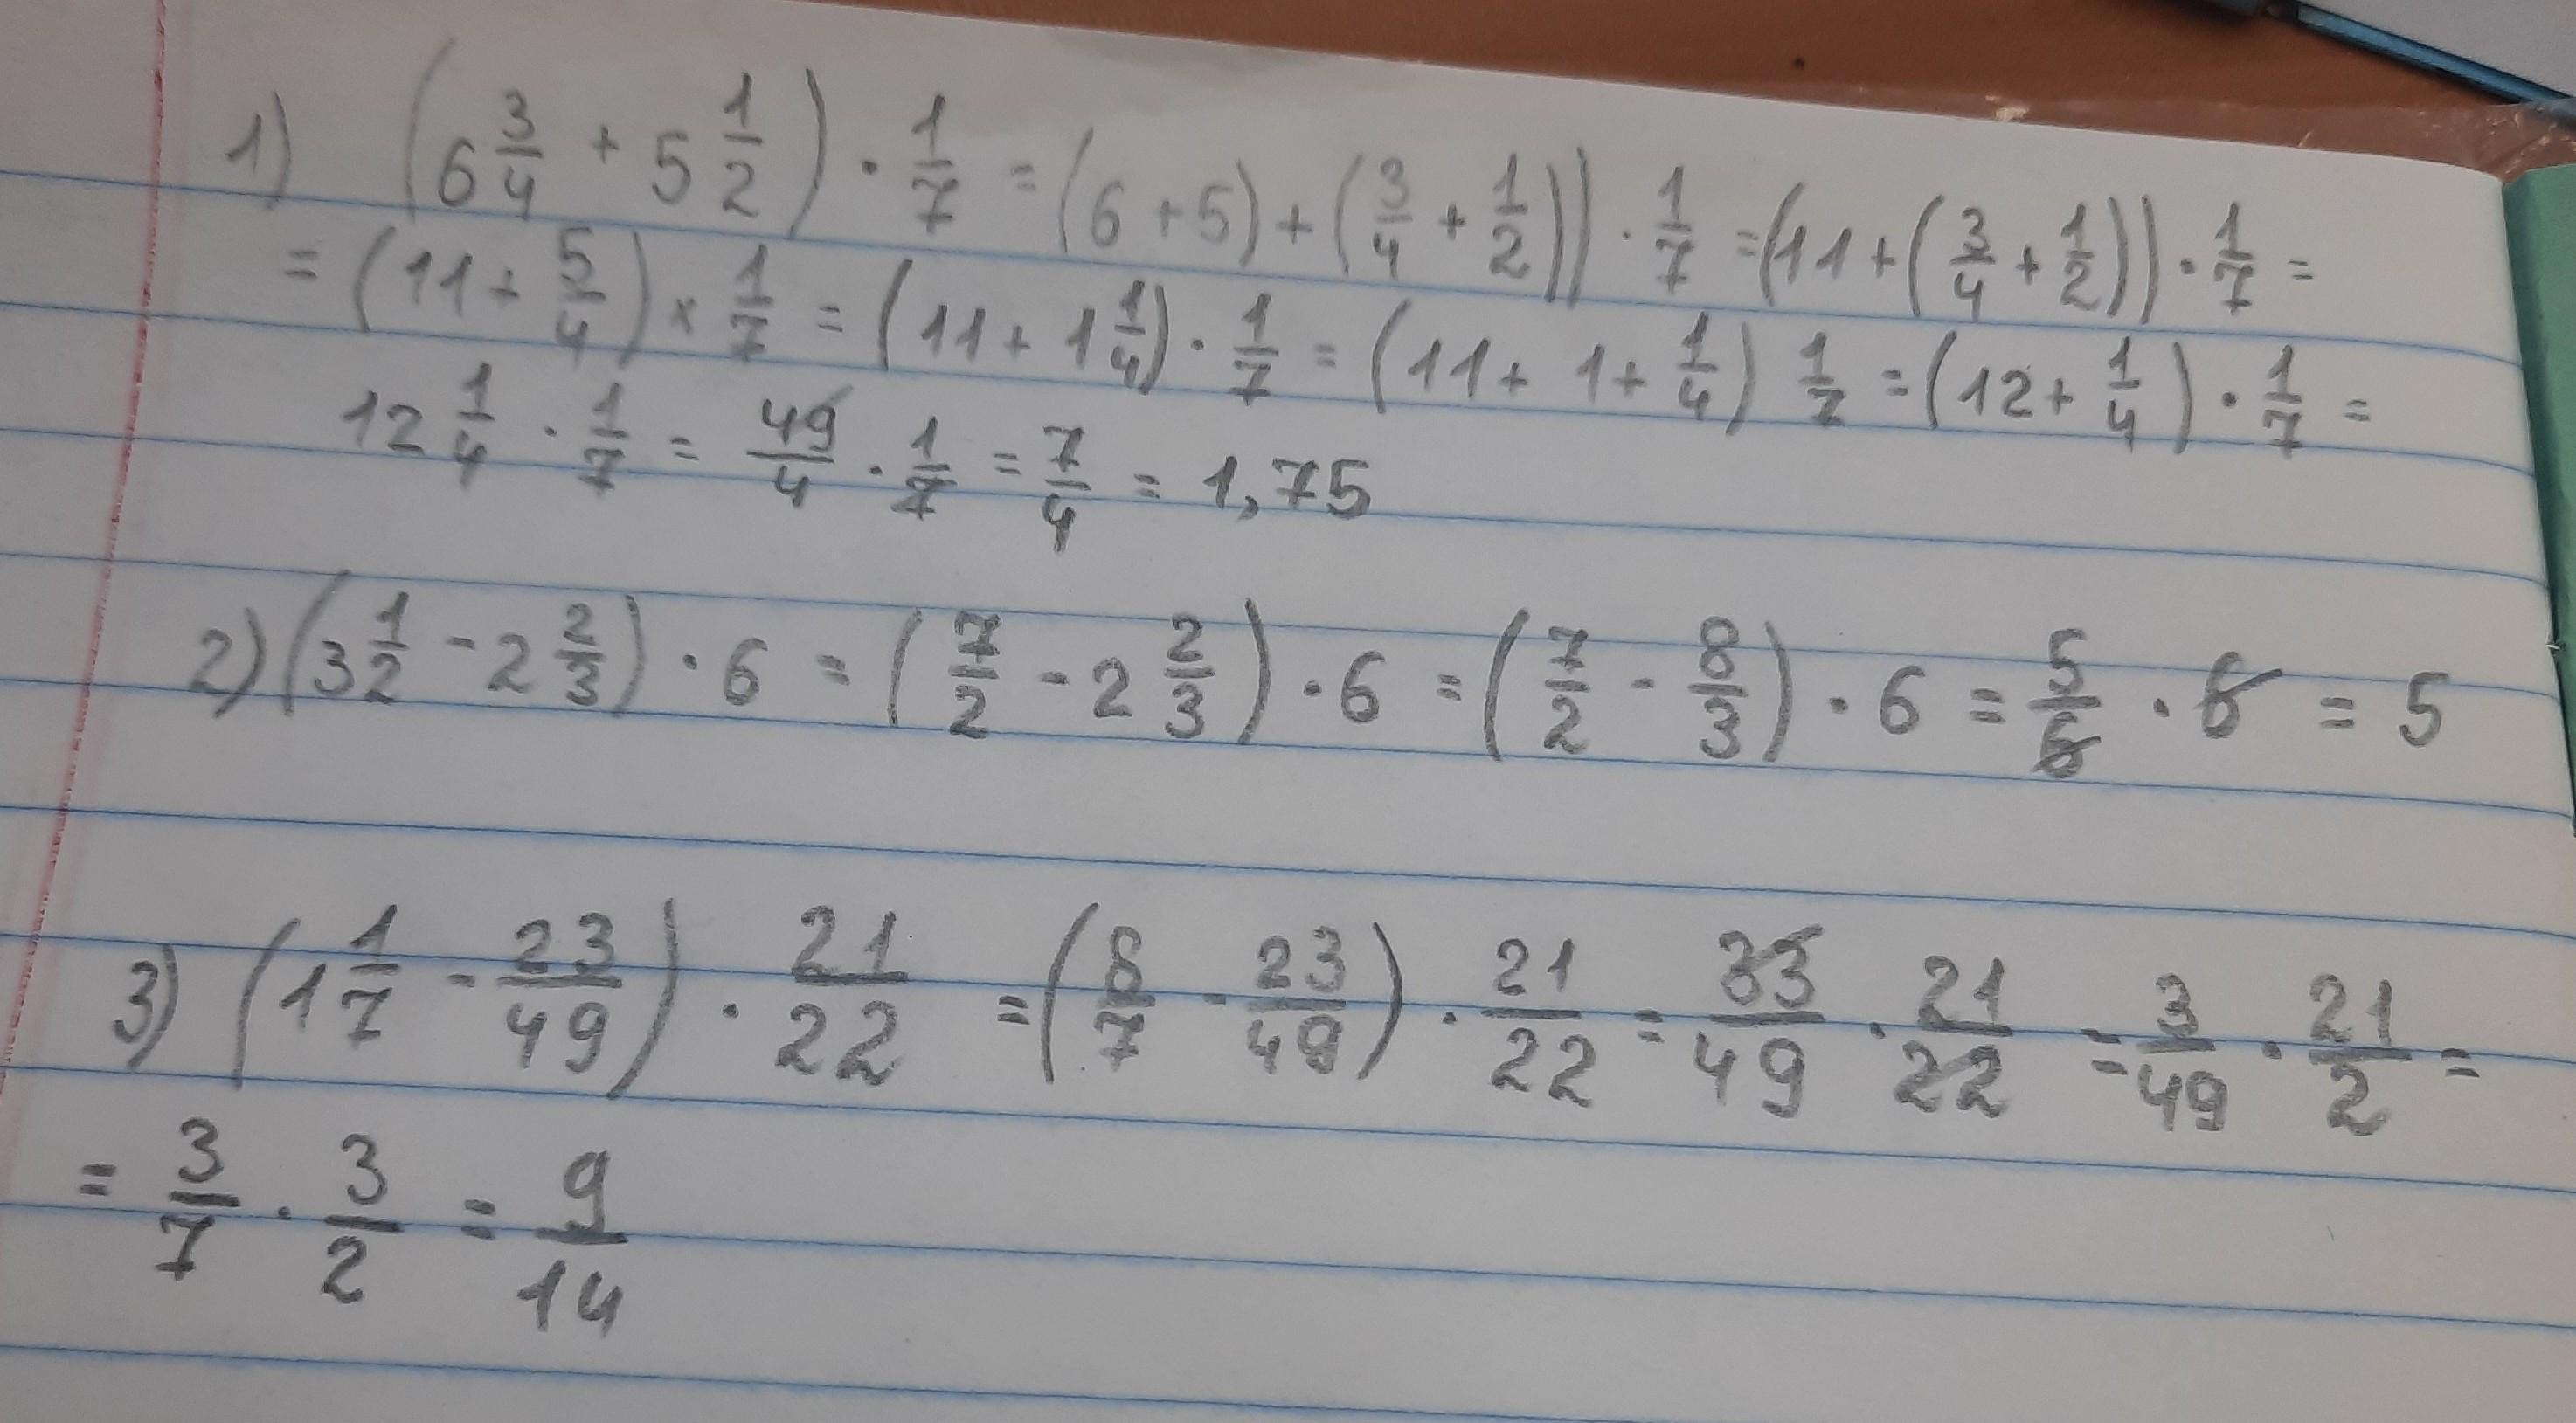 1) (6 3/4 + 5 1/2) · 1/7 = (6 + 5) + (3/4 + 1/2)) · 1/7 = (11 + (3/4 + 1/2)) · 1/7 =
= (11 + 5/4) × 1/7 = (11 + 1 1/4) · 1/7 = (11 + 1 + 1/4) 1/7 = (12 + 1/4) · 1/7 =
12 1/4 · 1/7 = 49/4 · 1/7 = 7/4 = 1,75
2) (3 1/2 - 2 2/3) · 6 = (7/2 - 2 2/3) · 6 = (7/2 - 8/3) · 6 = 5/6 · 6 = 5
3) (1 1/7 - 23/49) · 21/22 = (8/7 - 23/49) · 21/22 = 33/49 · 21/22 = 3/49 · 21/2 =
= 3/7 · 3/2 = 9/14